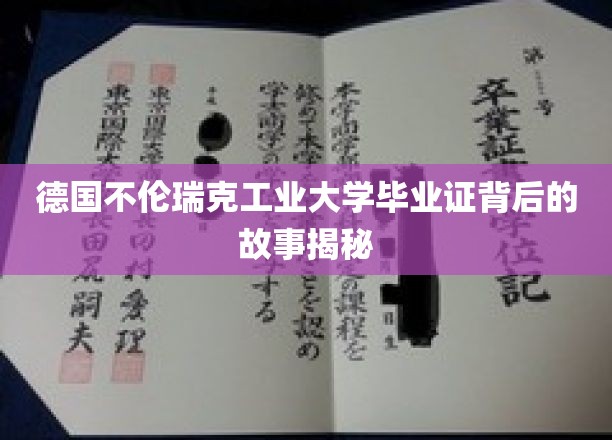 德国不伦瑞克工业大学毕业证背后的
故事揭秘
第 号
卒業証 学位記
本学商学部 定の課程を
修めて本学 ことを認め
学士(商学)の学 する
平成
月
日生
東京国際大学 村慶理
東京国際大学 長田尻嗣夫